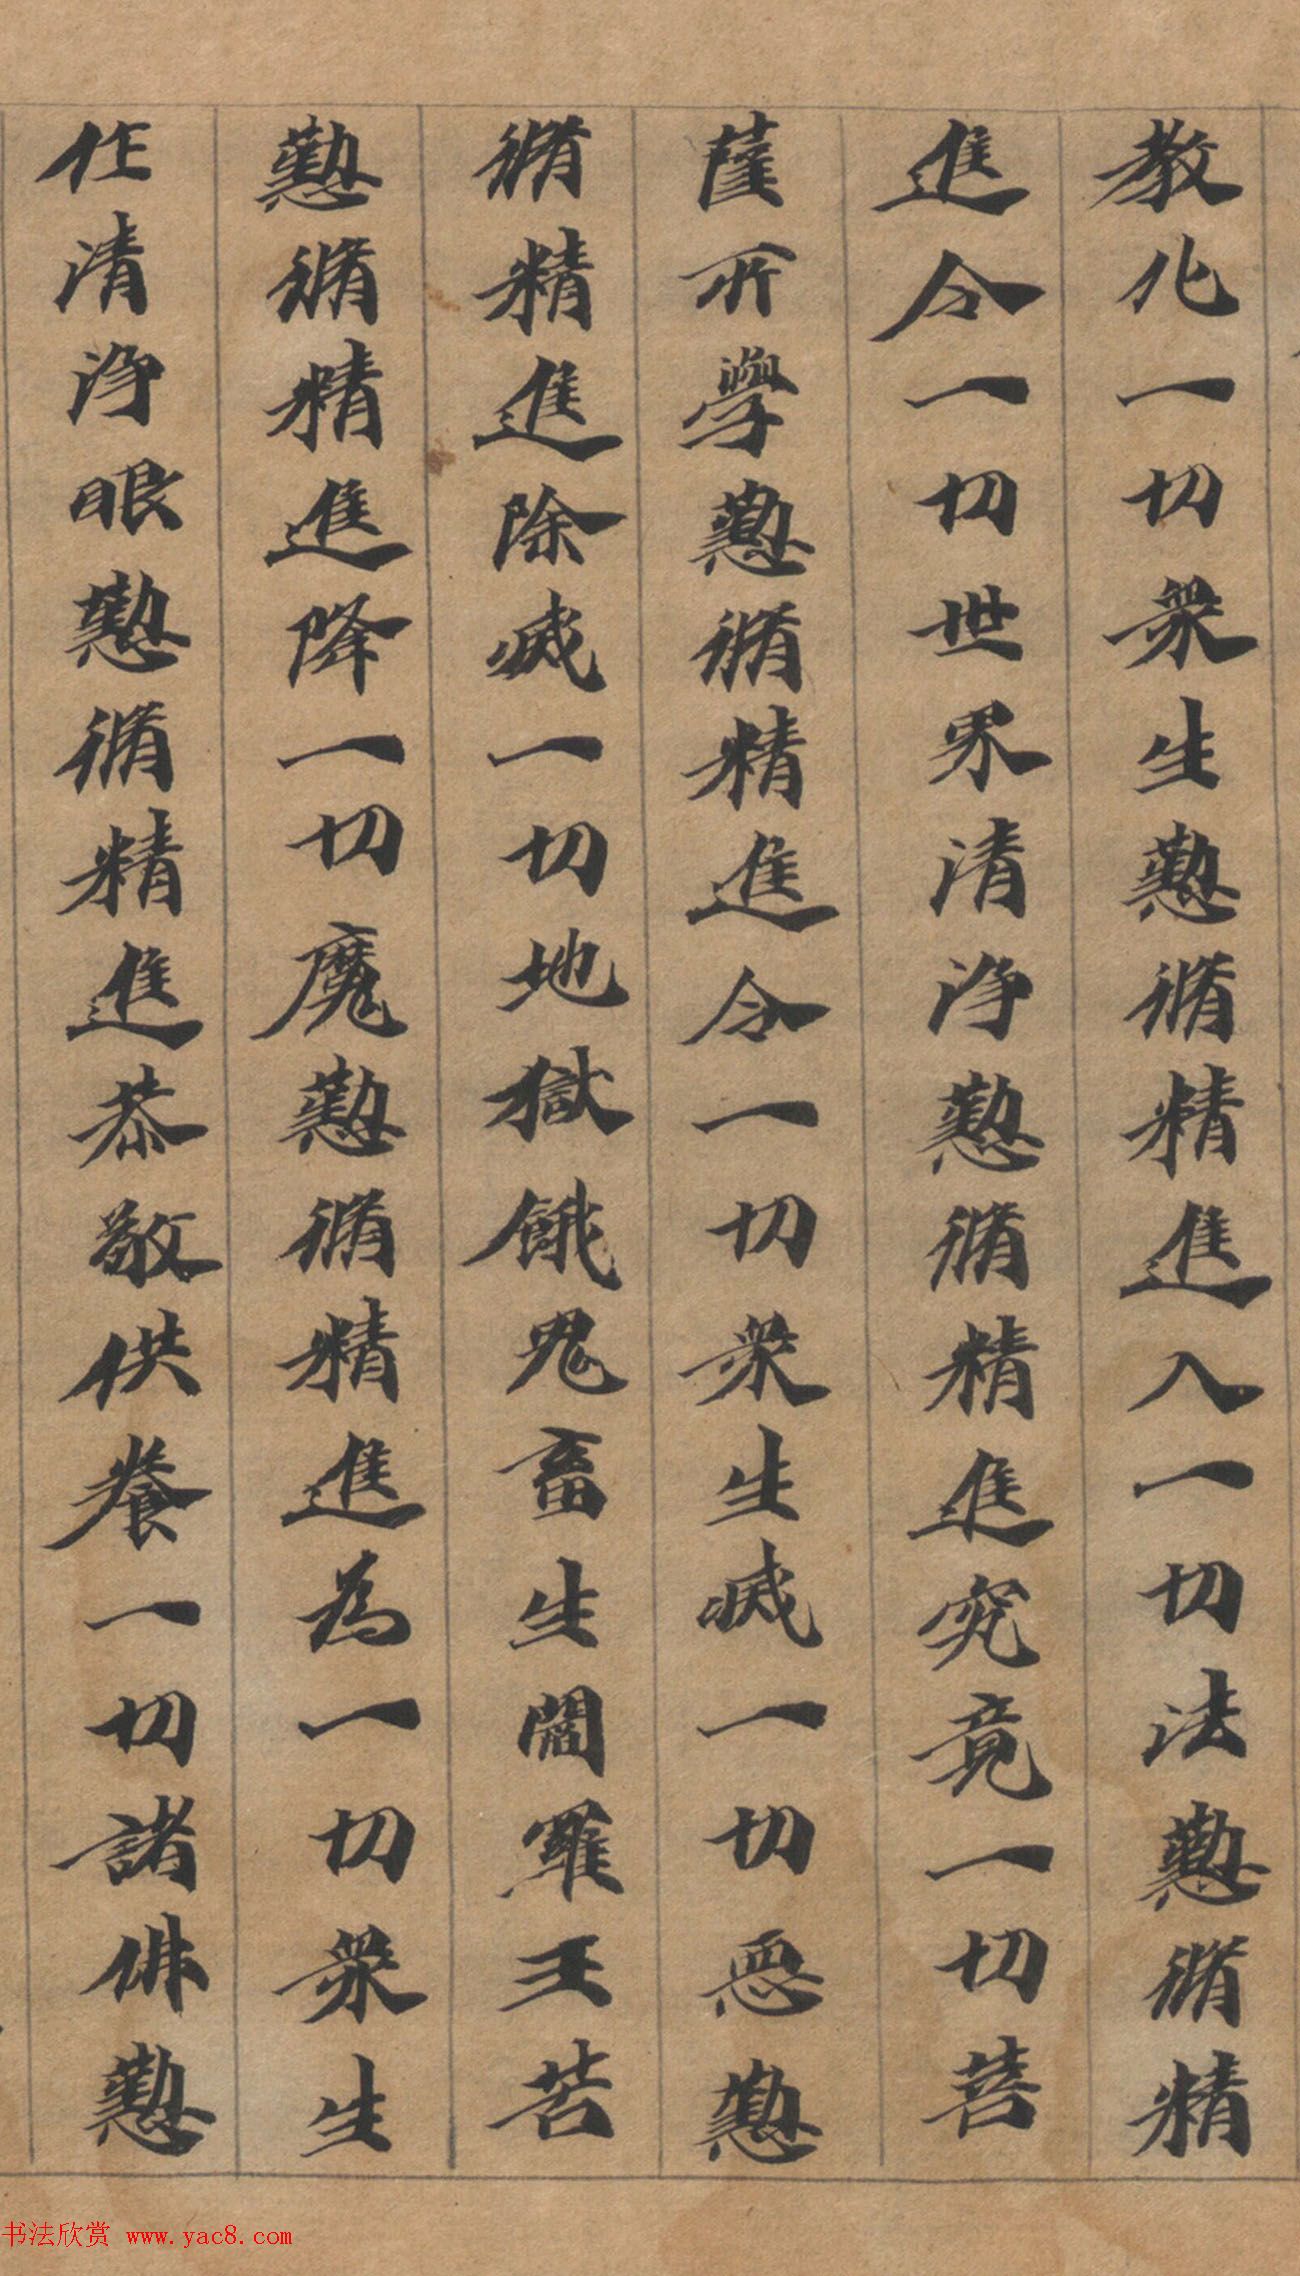 教化一切衆生懃脩精進入一切法懃脩精
進令一切世界清淨懃脩精進究竟一切菩
薩所學懃脩精進令一切衆生滅一切惡懃
脩精進除滅一切地獄餓鬼畜生閻羅王苦
懃脩精進降一切魔懃脩精進為一切衆生
作清淨眼懃脩精進恭敬供養一切諸佛懃
书法欣赏 www.yac8.com